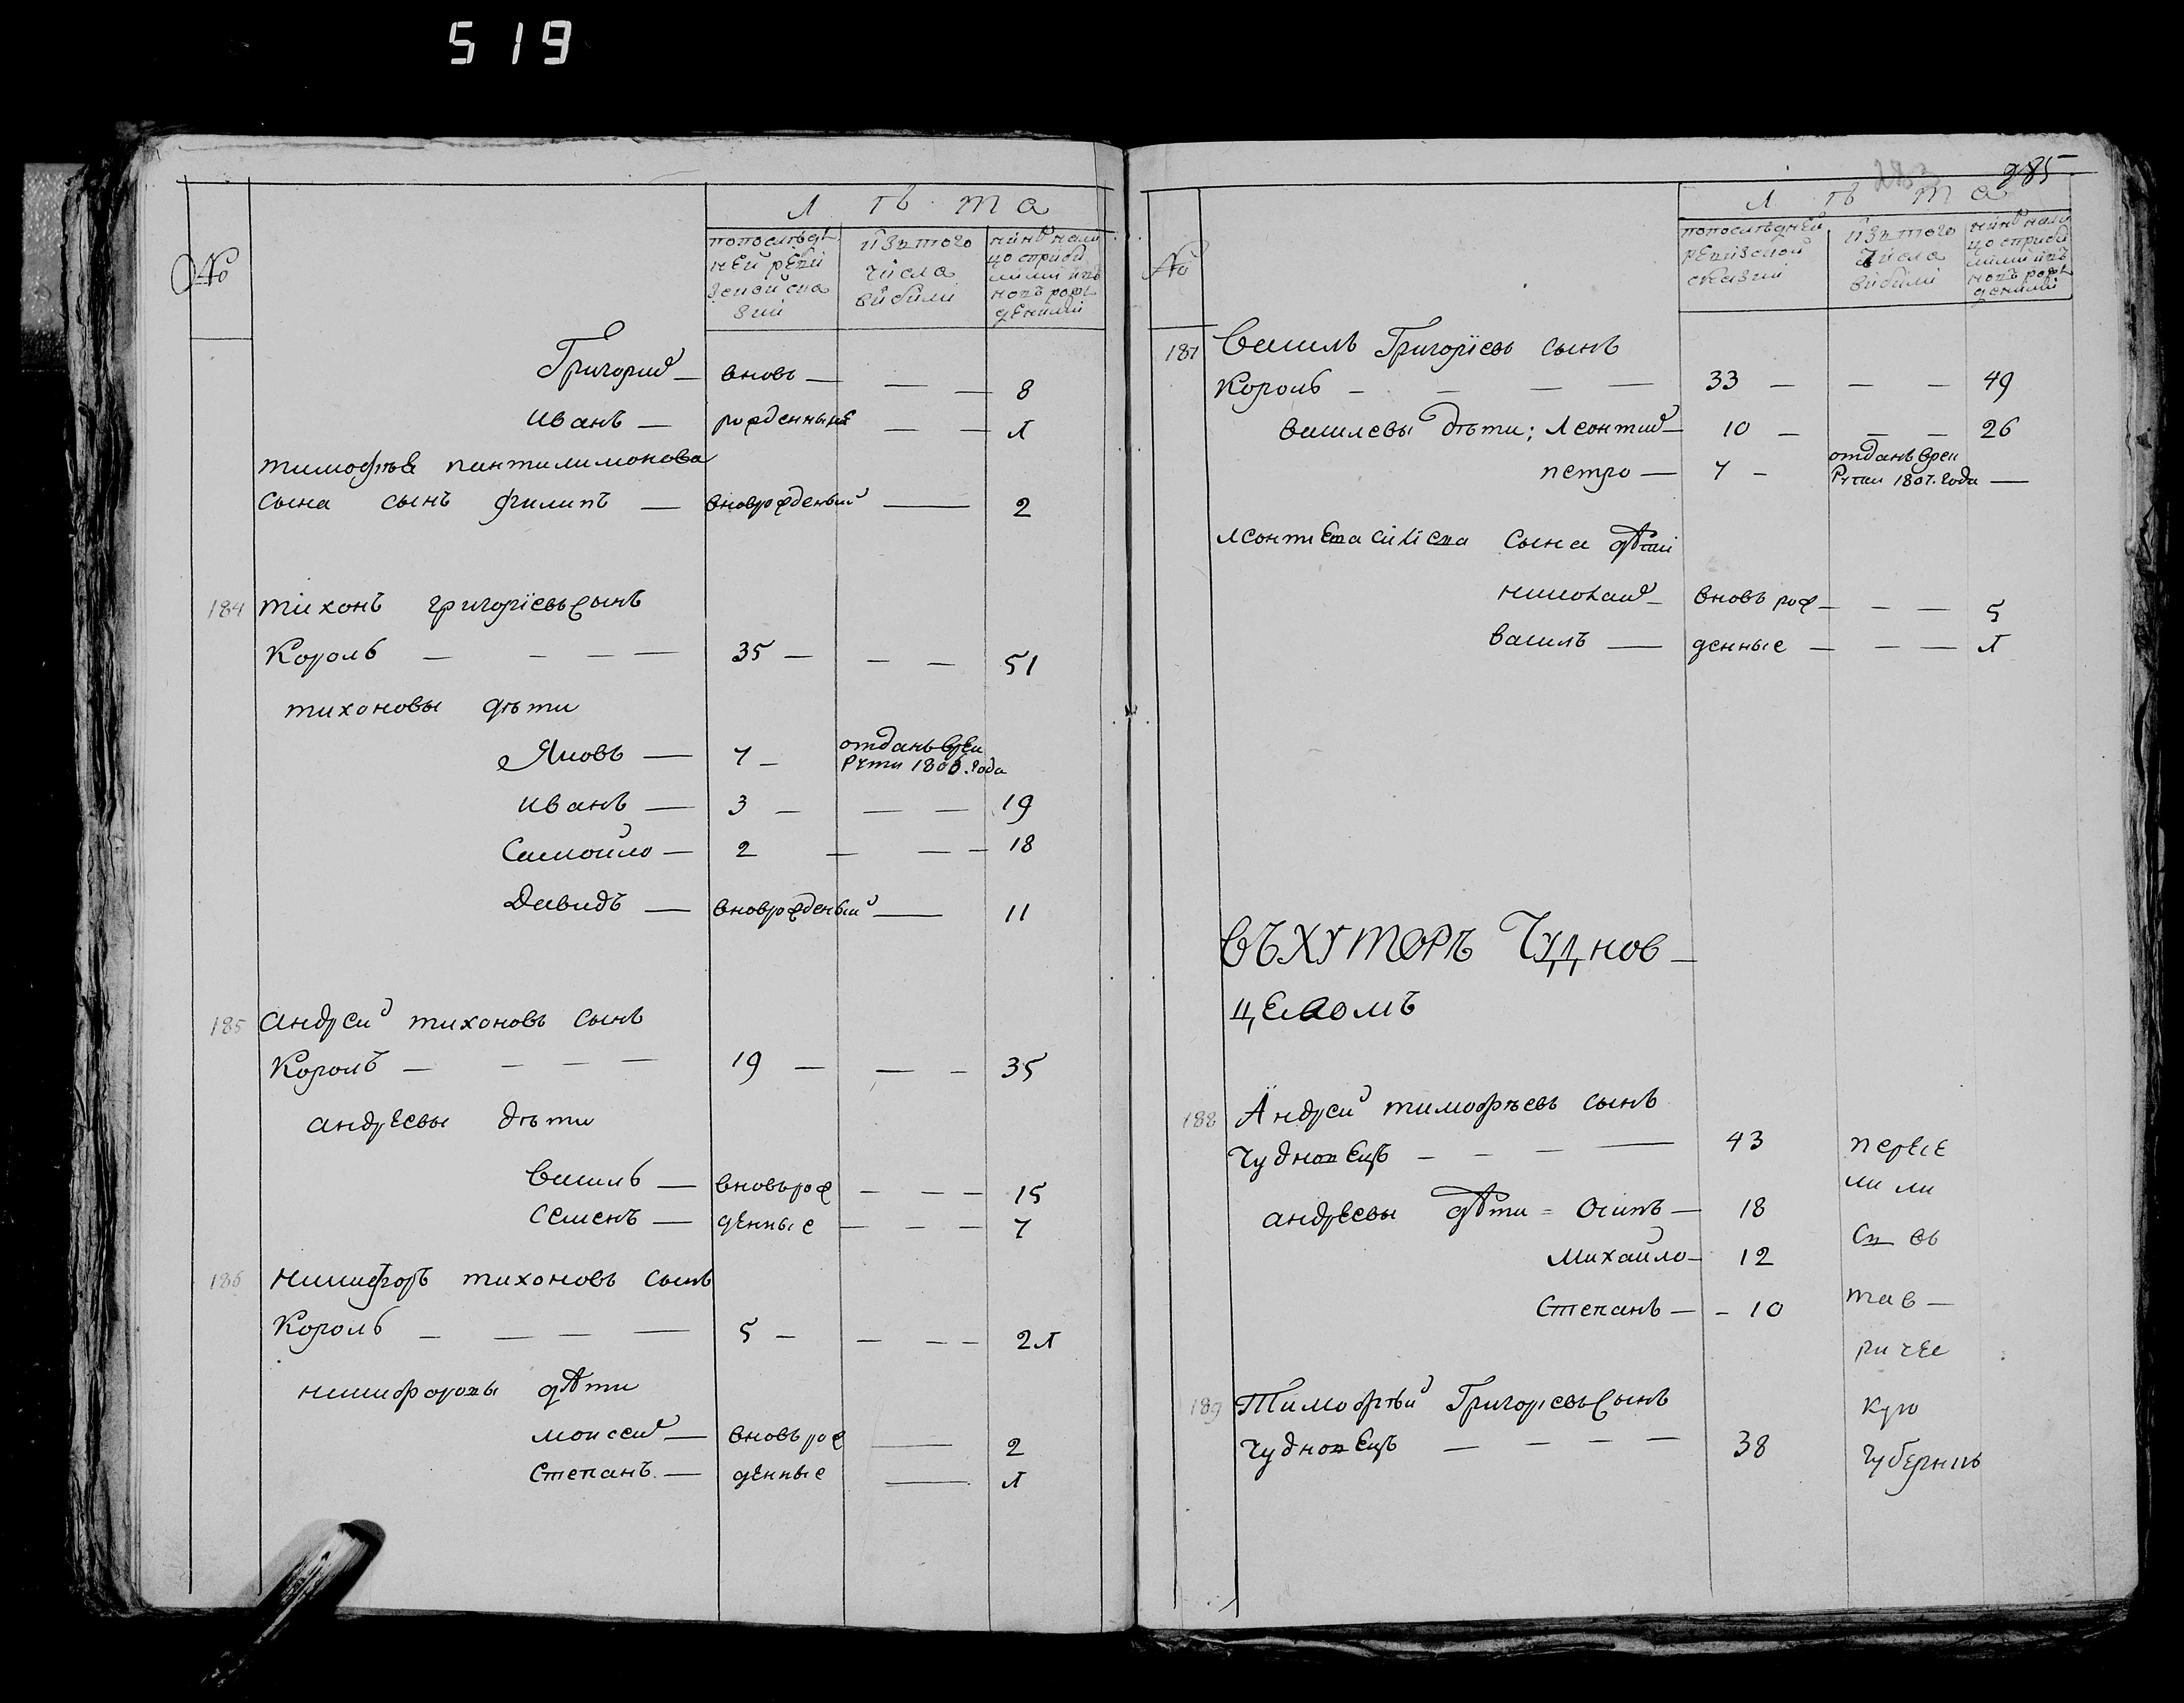 519
Лѣта
№
попоследней ревизской сказки
изъ того числа выбыли
ныне налицо сприбылими ивновъ рожденими
Григорий — вновь — — — 8
иванъ — рожденныие — — 1
тимофѣева пантилимонова
сына сынъ филипъ — вноврожденый — 2
184 тихонъ григоріевъ сынъ
Король — — — — 35 — — — 51
тихоновы дѣти
Яковъ — 7 — отданъ врекруты 1806. года
иванъ — 3 — — — 19
Самойло — 2 — — — 18
Давидъ — вноврожденый — 11
185 андрей тихоновъ сынъ
Король — — — — 19 — — — 35
андреевы дѣти
василь — вновь рож — — — 15
семенъ — денные — — — 7
186 никифоръ тихоновъ сынъ
Король — — — — 5 — — — — 21
никифоровы дѣти
моисей — вновь рож — 2
степанъ — денные — 1
285
283
Лѣта
№
попоследней ревизской сказки
изъ того числа выбыли
ныне налицо сприбылими ивновъ рожденими
187 василь Григоріевъ сынъ
Король — — — — 33 — — — 49
василевы дѣти: леонтий — 10 — — — 26
петро — 7 — отданъ врекруты 1807. года —
леонтиева василиева сына дѣти
николай — вновь рож — — — 5
василь — денные — — — 1
въ хуторѣ Чуднов—
цевомъ
188 андрей тимофѣевъ сынъ
чудновецъ — — — — 43 пересе
андреевы дѣти = осипъ — 18 лили
михайло — 12 сп въ
степанъ — - 10 тав—
ричес
189 Тимофѣй Григорiевъ сынъ кую
чудновецъ — — — — 38 губернию